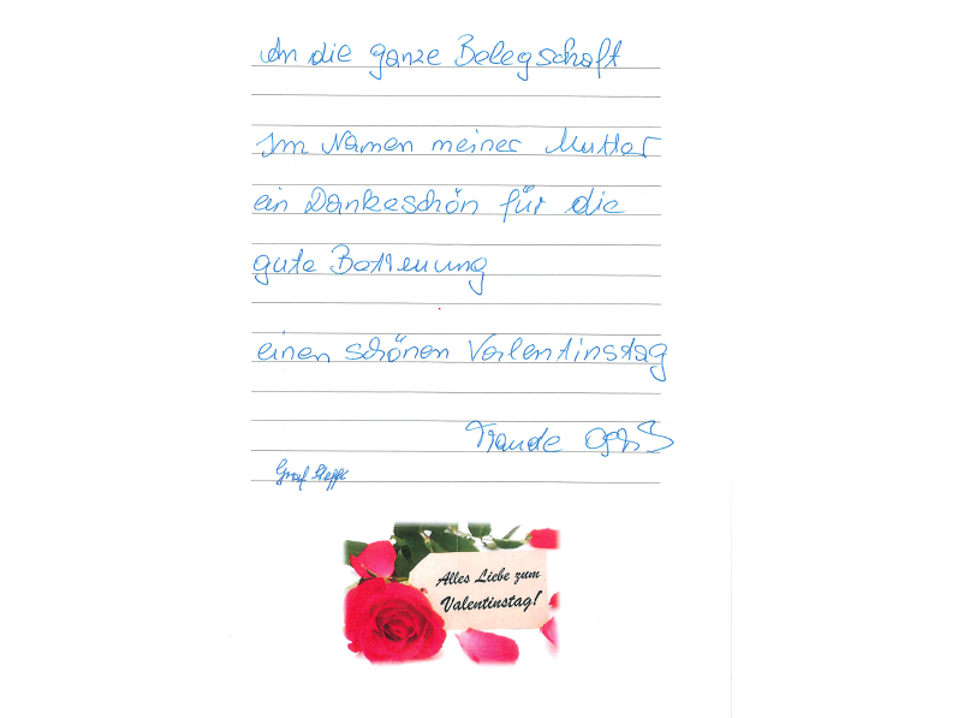 An die ganze Belegschaft
Im Namen meiner Mutter
ein Dankeschön für die
gute Betreuung
einen schönen Valentinstag
Traude
Graf
Alles Liebe zum
Valentinstag!